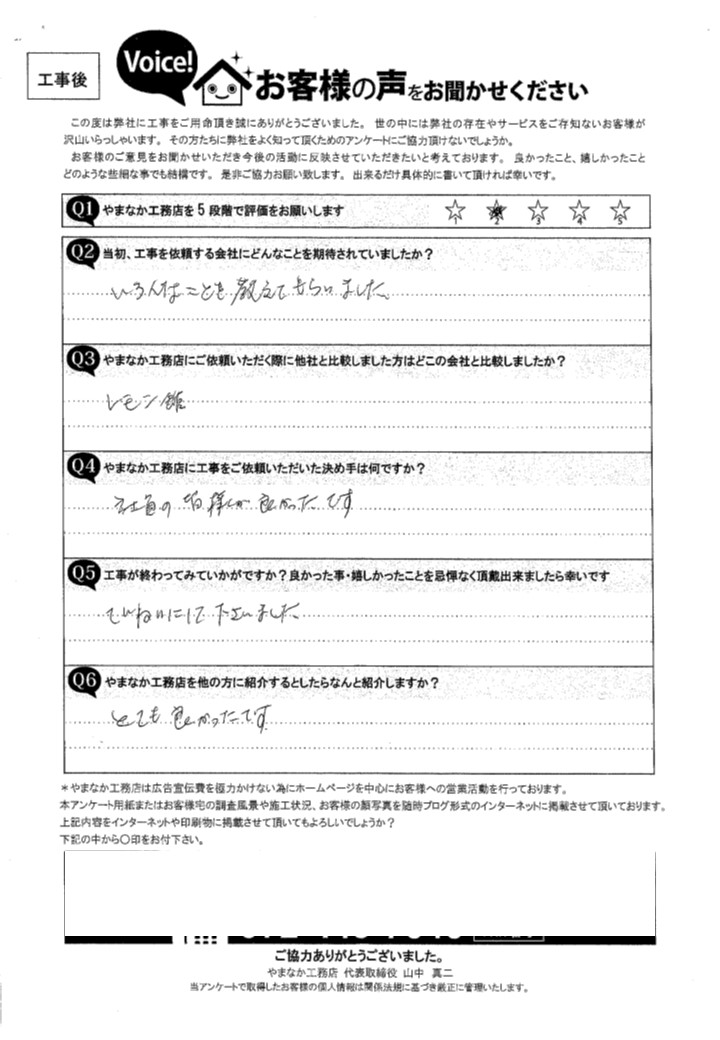 工事後
Voice!
お客様の声をお聞かせください
この度は弊社に工事をご用命頂き誠にありがとうございました。 世の中には弊社の存在やサービスをご存知ないお客様が
沢山いらっしゃいます。 その方たちに弊社をよく知って頂くためのアンケートにご協力頂けないでしょうか。
お客様のご意見をお聞かせいただき今後の活動に反映させていただきたいと考えております。 良かったこと、嬉しかったこと
どのような些細な事でも結構です。 是非ご協力お願い致します。 出来るだけ具体的に書いて頂ければ幸いです。
Q1 やまなか工務店を5段階で評価をお願いします
1 2 3 4 5
Q2 当初、工事を依頼する会社にどんなことを期待されていましたか？
いろんなことを教えてもらいました。
Q3 やまなか工務店にご依頼いただく際に他社と比較しました方はどこの会社と比較しましたか？
レモン館
Q4 やまなか工務店に工事をご依頼いただいた決め手は何ですか？
社員の皆様が良かったです
Q5 工事が終わってみていかがですか？良かった事・嬉しかったことを忌憚なく頂戴出来ましたら幸いです
ていねいにして下さいました
Q6 やまなか工務店を他の方に紹介するとしたらなんと紹介しますか？
とても良かったです
＊やまなか工務店は広告宣伝費を極力かけない為にホームページを中心にお客様への営業活動を行っております。
本アンケート用紙またはお客様宅の調査風景や施工状況、お客様の顔写真を随時ブログ形式のインターネットに掲載させて頂いております。
上記内容をインターネットや印刷物に掲載させて頂いてもよろしいでしょうか？
下記の中から〇印をお付下さい。
ご協力ありがとうございました。
やまなか工務店 代表取締役 山中 真二
当アンケートで取得したお客様の個人情報は関係法規に基づき厳正に管理いたします。